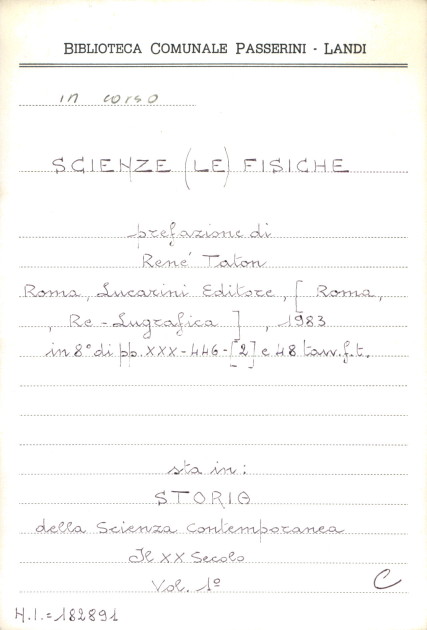 BIBLIOTECA COMUNALE PASSERINI - LANDI
in corso
SCIENZE (LE) FISICHE
prefazione di
René Taton
Roma, Lucarini Editore, [ Roma,
, Re-Lugrafica ] , 1983
in 8° di pp. XXX-446-[2] e 48 tavv. f. t.
sta in:
STORIA
della Scienza Contemporanea
Il XX Secolo
Vol. 1º
C
H.I.=182891